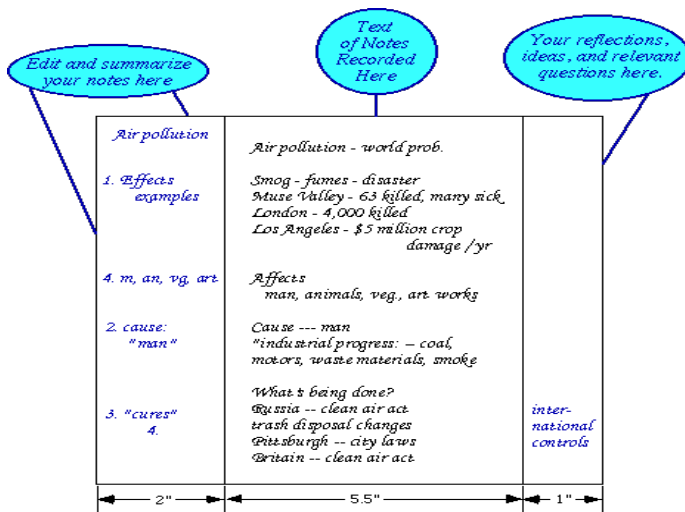 Text
of Notes
Recorded
Here
Edit and summarize
your notes here
Your reflections,
ideas, and relevant
questions here.
Air pollution
1. Effects
examples
4. m, an, vg, art
2. cause:
"man"
3. "cures"
4.
Air pollution - world prob.
Smog - fumes - disaster
Muse Valley - 63 killed, many sick
London - 4,000 killed
Los Angeles - $5 million crop
damage /yr
Affects
man, animals, veg., art works
Cause --- man
"industrial progress: – coal,
motors, waste materials, smoke
What's being done?
Russia -- clean air act
trash disposal changes
Pittsburgh -- city laws
Britain -- clean air act
inter-
national
controls
2"
5.5"
1"